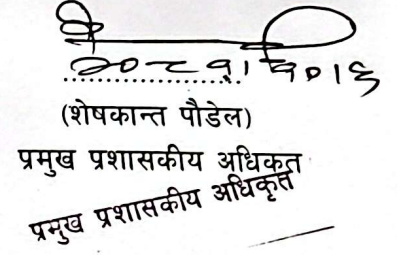 २०८१।१०।६
(शेषकान्त पौडेल)
प्रमुख प्रशासकीय अधिकृत
प्रमुख प्रशासकीय अधिकृत